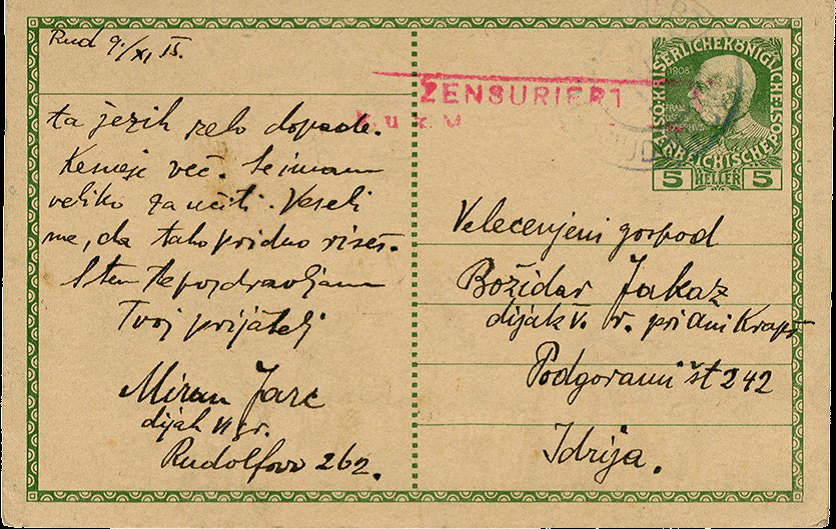 Rud 9./XI 15.
ta jezik zelo dopade.
Kesneje več. Se imam
veliko za učiti. Veseli
me, da tako pridno rišeš.
S tem Te pozdravljam
Tvoj prijatelj
Miran Jarc
dijak VI gr.
Rudolfovo 262.
ZENSURIERT
K. u. K.
1908
KAISERLICHEKÖNIGLICHE
ÖSTERREICHISCHE
5 HELLER 5
Velecenjeni gospod
Božidar Jakac
dijak V. r. pri Ani
Podgorami št 242
Idrija.